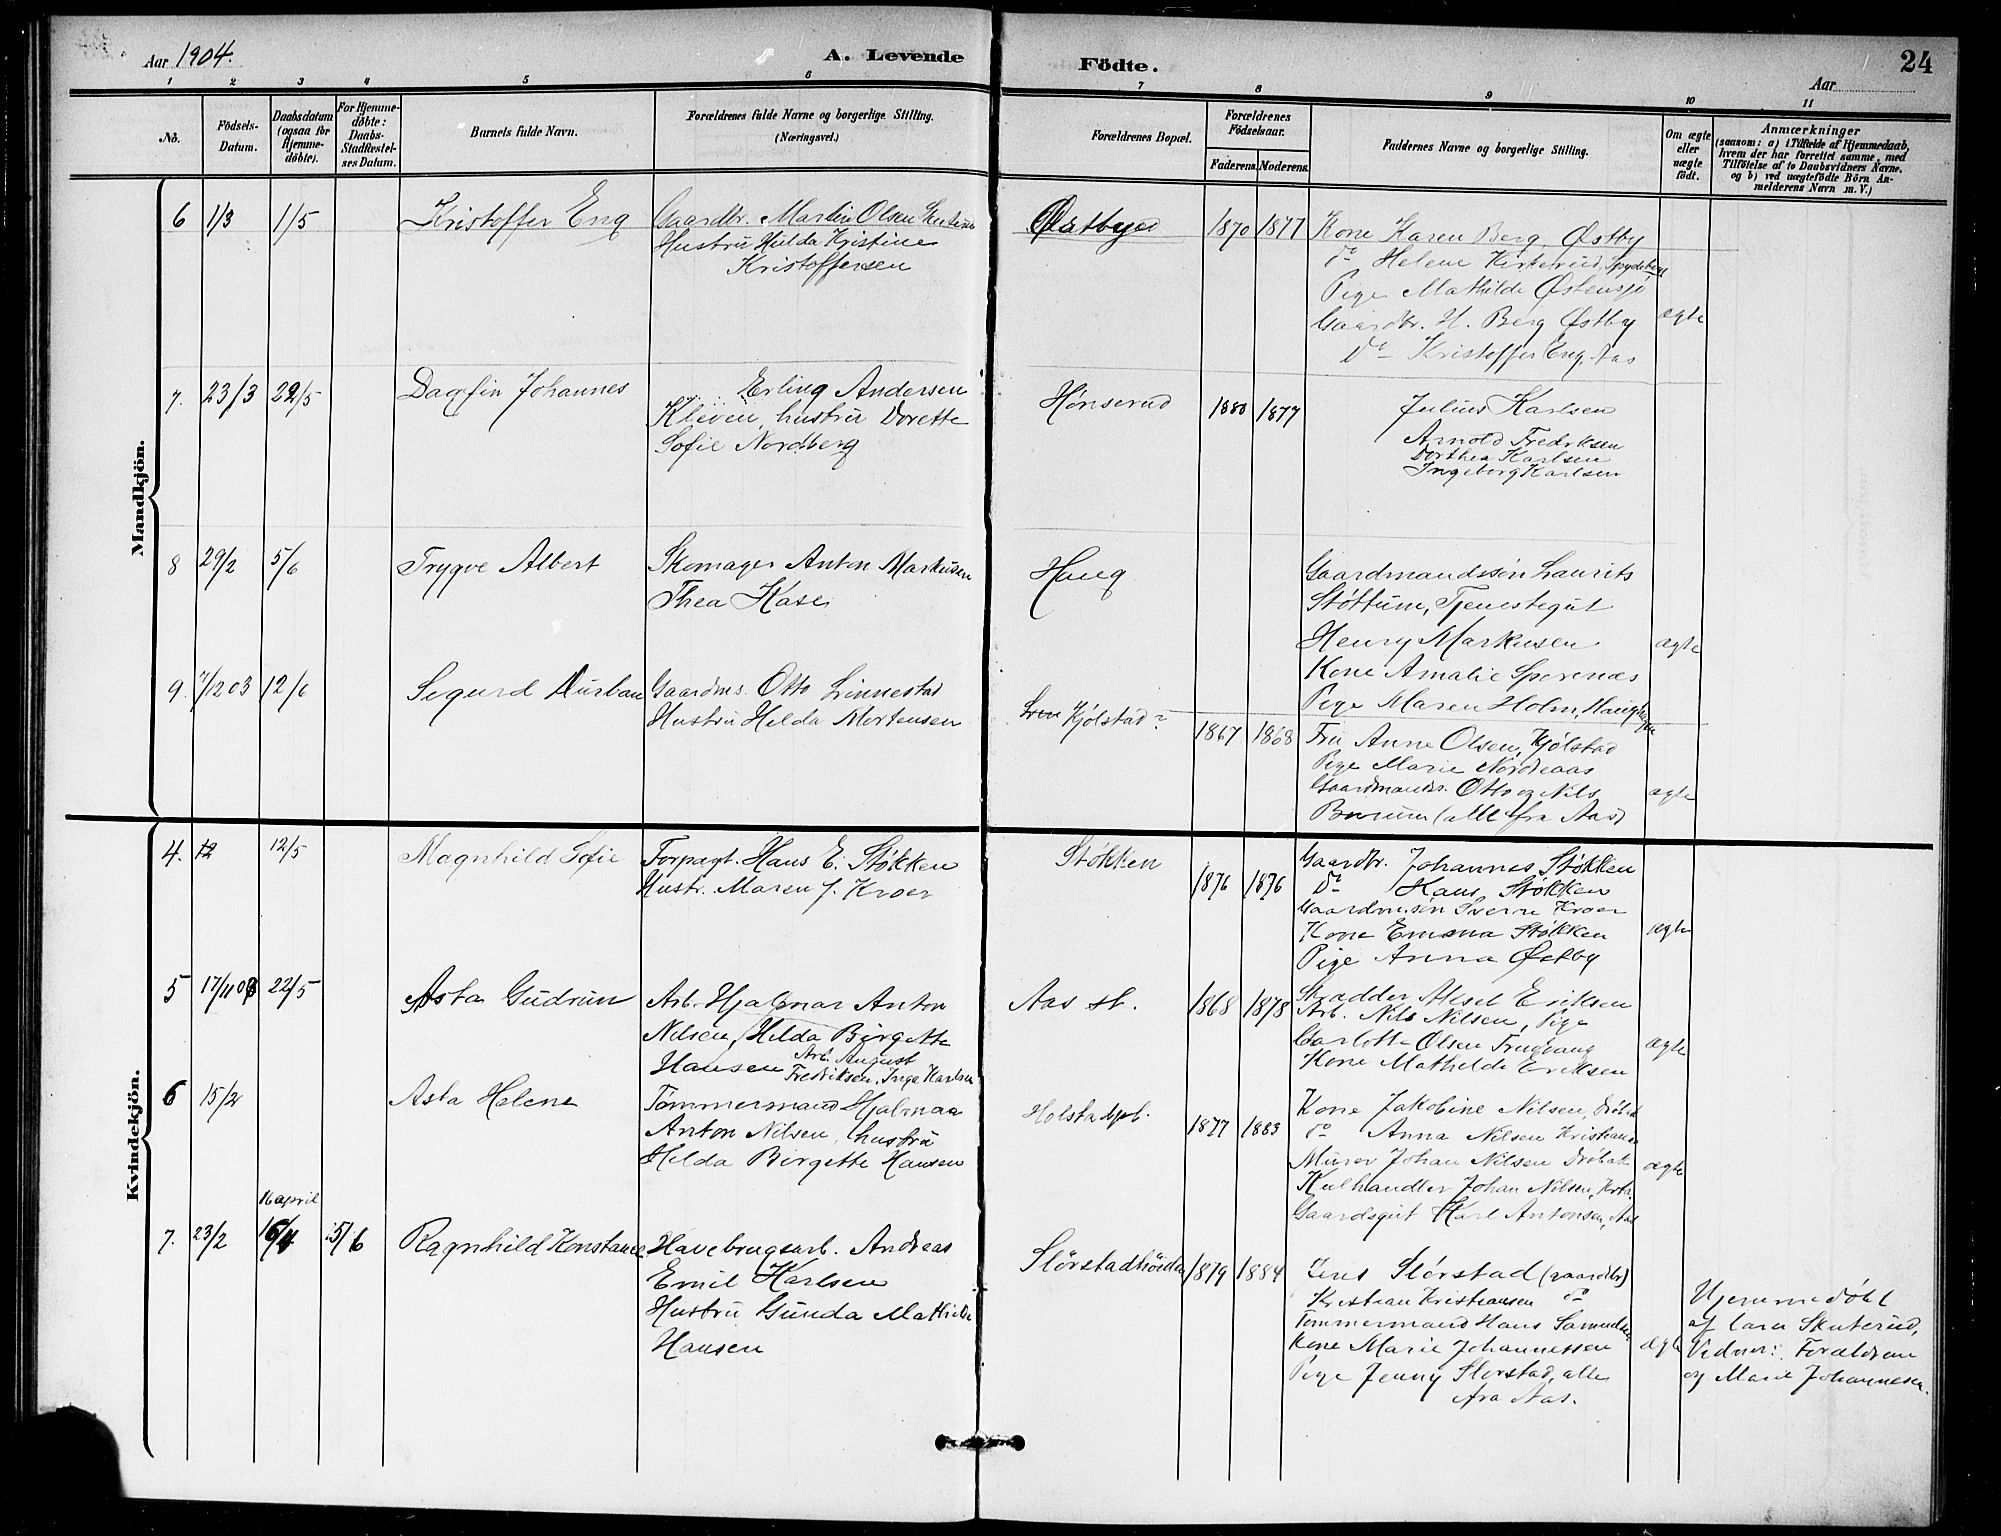 Aar 1904.
A. Levende Födte.
Aar
24
1 2 3 4 5 6 7 8 9 10 11
No.
Födsels-
Datum.
Daabsdatum
(ogsaa for
Hjemme-
döbte).
For Hjemme-
döbte:
Daabs-
Stadfæstel-
ses Datum.
Barnets fulde Navn.
Forældrenes fulde Navne og borgerlige Stilling.
(Næringsvei.)
Forældrenes Bopæl.
Forældrenes
Födselsaar.
Faderens. Moderens.
Faddernes Navne og borgerlige Stilling.
Om ægte
eller
uægte
født.
Anmærkninger
(saasom: a) i Tilfælde af Hjemmedaab,
hvem der har forrettet samme, med
Tilföielse af to Daabsvidners Navne,
og b) ved uægtefödte Börn An-
melderens Navn m. V.)
Mandkjön.
6 1/3 1/5 Kristoffer Eng
Gaardbr. Martin Olsen
Hustru Hulda Kristine
Kristoffersen
Østbyed 1870 1877
Kone Karen Berg, Østby
do Helene Spydeberg
Pige Mathilde Østensjö
Gaardbr. H. Berg Østby
Do Kristoffer Eng, Aas
ægte
7. 23/3 22/5 Dagfin Johannes
Erling Andersen
Kleven, hustru Dorette
Sofie Nordberg
Hønserud 1880 1877
Julius Karlsen
Arnold Fredriksen
Dorthea Karlsen
Ingeborg Karlsen
8 29/2 5/6 Trygve Albert
Skomager Anton Markusen
Thea Kase
Haug
Gaardmandssøn Laurits
Støttum, Tjenestegut
Henry Markusen
Kone Amalie Sporenæs
Pige Maren Holm,
ægte
9. 7/12 03 12/6 Segurd Durban
Gaardm.s. Otto Linnestad
Hustru Helda Mortensen
Kjølstad? 1867 1868
Fru Anne Olsen, Kjølstad
Pige Marie Nordaas
Gaardmandss. Otto og Nils
(alle fra Aas)
ægte
Kvindekjön.
4. 12 12/5 Magnhild Sofie
Forpagt. Hans E. Støkken
Hustr. Maren J. Kroer
Støkken 1876 1876
Gaardbr. Johannes Støkken
Do Hans Støkken
Gaardm.søn Sverre Kroer
Kone Emma Støkken
Pige Anna Østby
ægte
5 17/11 03 22/5 Asta Gudrun
Arb. Hjalmar Anton
Nilsen, Hilda Birgette
Hansen Arb. August
Fredriksen, Inga Karlsen
Aas st. 1868 1878
Skrædder Aksel Eriksen
Arb. Nils Nilsen, Pige
Carlotte Olsen Frugvang
Kone Mathilde Eriksen
ægte
6 15/2 Asta Helene
Tømmermand Hjalmar
Anton Nilsen, hustru
Helda Birgette Hansen
Holstadpl. 1877 1883
Kone Jakobine Nilsen, Drøbak
do Anna Nilsen Kristiania
Murer Johan Nilsen Drøbak
Kulhandler Johan Nilsen, Krba.
Gaardsgut Karl Antonsen, Aas
ægte
16 april
7. 23/2 16/4 5/6 Ragnhild Konstance
Havebrugsarb. Andreas
Emil Karlsen
Hustru Gunda Mathilde
Hansen
Slørstadhöiden 1879 1884
Jens Slørstad (gaardbr)
Kristian Kristiansen do
Tømmermand Hans Samuelsen
Kone Marie Johannessen
Pige Jenny Slørstad, alle
fra Aas.
ægte
Hjemmedøbt
af Lara Skuterud,
Vidner: Forældrene
og Marie Johannesen.